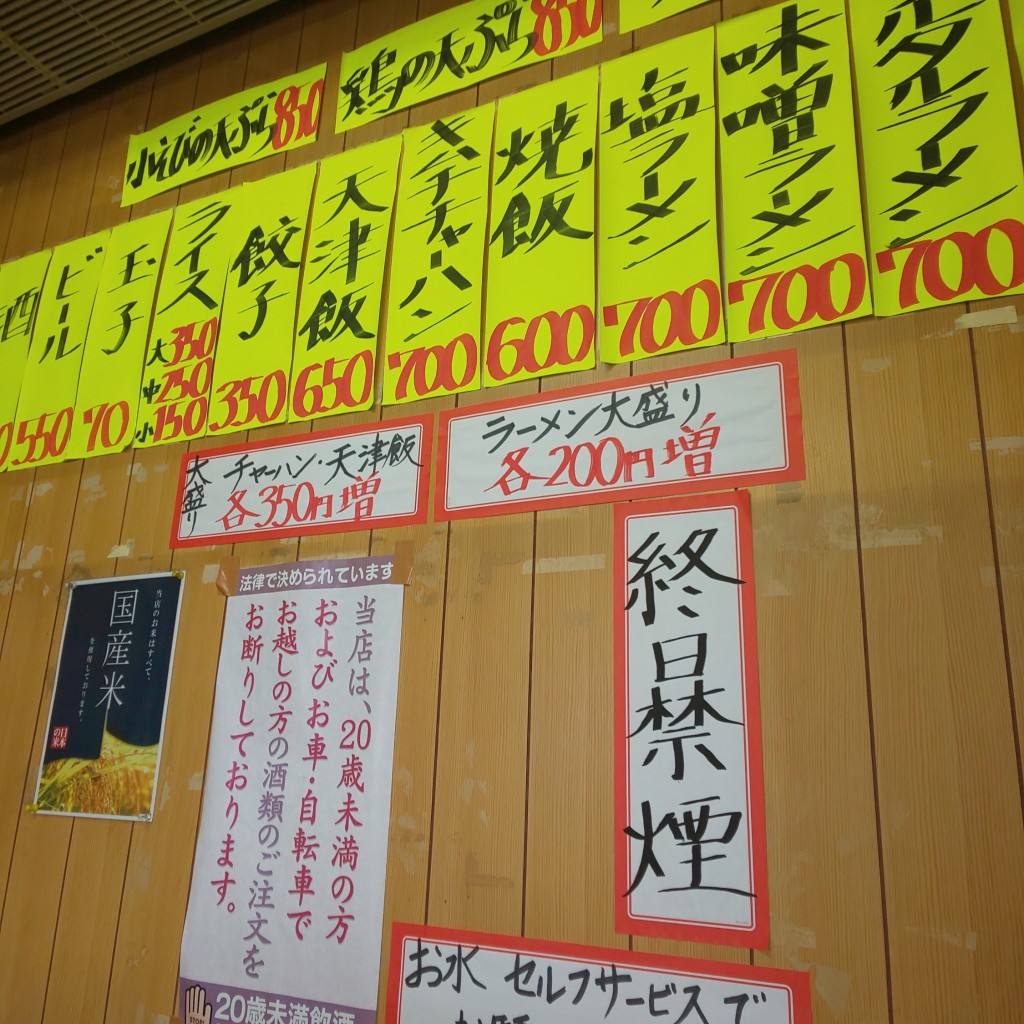 小えびの天ぷら850
鶏の天ぷら850
ルタルラーメン
700
味噌ラーメン
700
塩ラーメン
700
焼飯
600
キムチチャーハン
700
天津飯
650
餃子
350
ライス
大350
中250
小150
玉子
70
ビール
550
酒
0
大盛り
チャーハン・天津飯
各350円増
ラーメン大盛り
各200円増
終日禁煙
当店のお米はすべて、
国産米
を使用しております。
日本の米
法律で決められています
当店は、20歳未満の方
およびお車・自転車で
お越しの方の酒類のご注文を
お断りしております。
STOP!
20歳未満飲酒
お水 セルフサービスで